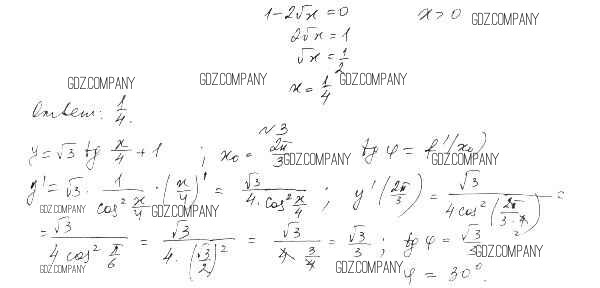 1-2√x=0 x>0 GDZ.COMPANY
2√x=1
√x=1/2
GDZ.COMPANY GDZ.COMPANY x=1/4 GDZ.COMPANY
Ответ: 1/4.
№3
y=√3 tg x/4+1 ; x₀=2π/3 GDZ.COMPANY tg φ=f'(x₀) GDZ.COMPANY
y'=√3·1/cos² x/4·(x/4)'=√3/4·cos² x/4 ; y'(2π/3)=√3/4cos²(2π/3·4)=
GDZ.COMPANY GDZ.COMPANY
=√3/4cos² π/6=√3/4·(√3/2)²=√3/4·3/4=√3/3 ; tg φ=√3/3 GDZ.COMPANY
GDZ.COMPANY GDZ.COMPANY φ=30°.